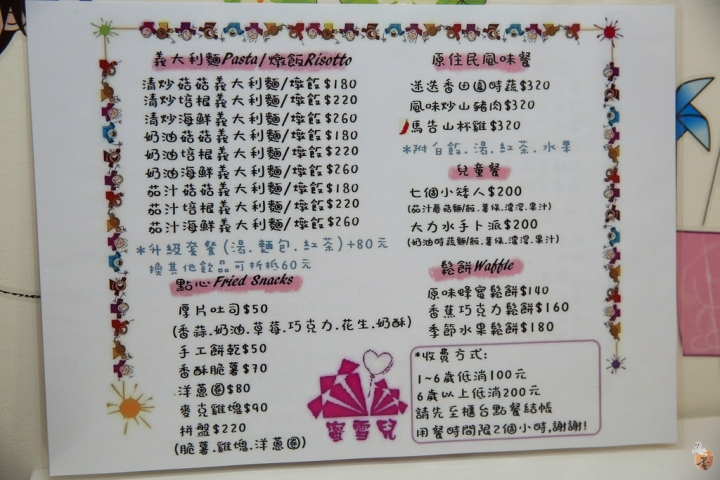 義大利麵Pasta/燉飯Risotto
清炒菇菇義大利麵/燉飯$180
清炒培根義大利麵/燉飯$220
清炒海鮮義大利麵/燉飯$260
奶油菇菇義大利麵/燉飯$180
奶油培根義大利麵/燉飯$220
奶油海鮮義大利麵/燉飯$260
茄汁菇菇義大利麵/燉飯$180
茄汁培根義大利麵/燉飯$220
茄汁海鮮義大利麵/燉飯$260
*升級套餐(湯.麵包.紅茶)+80元
換其他飲品可折抵60元
點心Fried Snacks
厚片吐司$50
(香蒜.奶油.草莓.巧克力.花生.奶酥)
手工餅乾$50
香酥脆薯$70
洋蔥圈$80
麥克雞塊$90
拼盤$220
(脆薯.雞塊.洋蔥圈)
原住民風味餐
迷迭香田園時蔬$320
風味炒山豬肉$320
馬告山杯雞$320
*附白飯.湯.紅茶.水果
兒童餐
七個小矮人$200
(茄汁蘑菇麵/飯.薯條.濃湯.果汁)
大力水手卜派$200
(奶油時蔬麵/飯.薯條.濃湯.果汁)
鬆餅Waffle
原味蜂蜜鬆餅$140
香蕉巧克力鬆餅$160
季節水果鬆餅$180
*收費方式:
1~6歲低消100元
6歲以上低消200元
請先至櫃台點餐結帳
用餐時間限2個小時,謝謝!
蜜雪兒